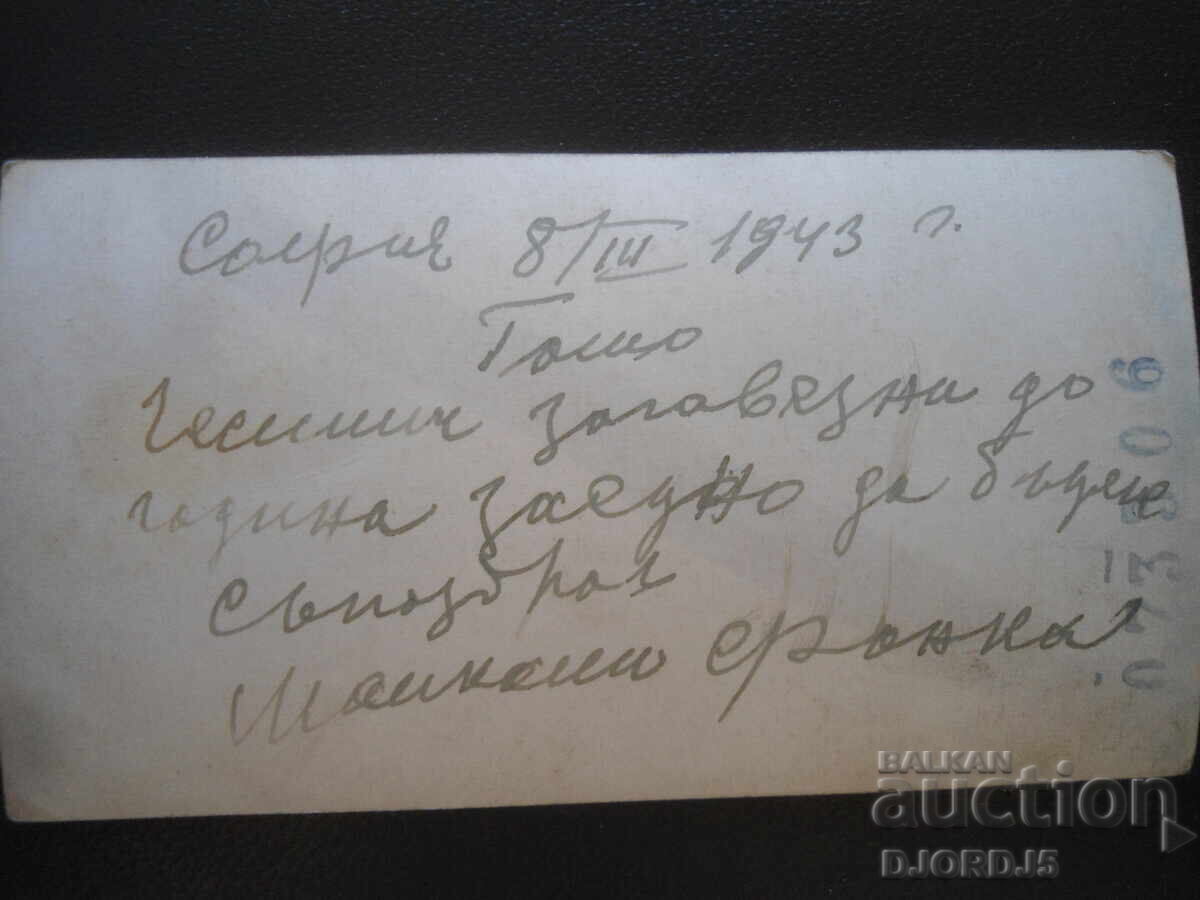 София 8/III 1943 г.
Гошо
Чесиши заговезни до
година заедно да бъдем
съпоздрав
Майкати Фанка
073806
BALKAN
auction
DJORDJ5